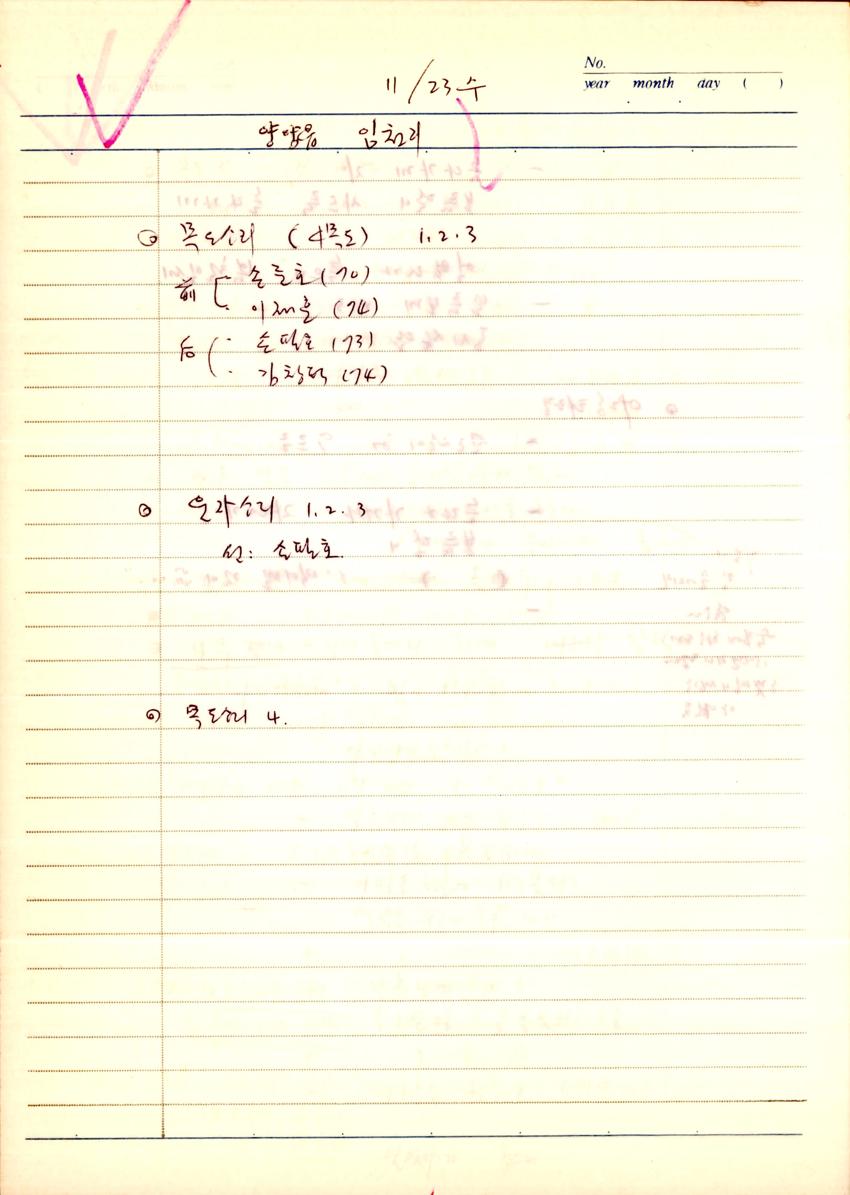 No.
year month day ( )
11/23 수
양양읍 임천리
⊙ 목도소리 (4목도) 1.2.3
前 손들호 (70)
이재훈 (74)
손팔호 (73)
김창덕 (74)
⊙ 운자소리 1.2.3
선: 손팔호.
⊙ 목도소리 4.